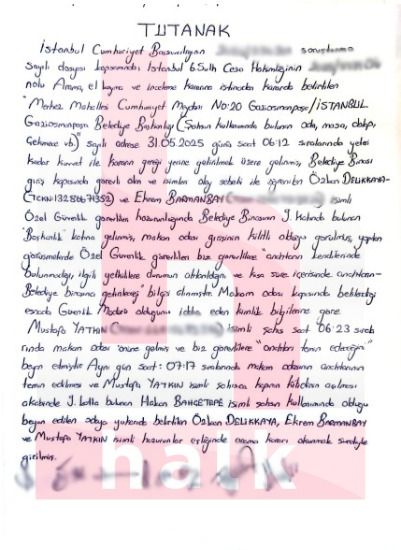 TUTANAK
İstanbul Cumhuriyet Başsavcılığının soruşturma
sayılı dosyası kapsamında İstanbul 6.Sulh Ceza Hakimliğinin
nolu Arama, el koyma ve inceleme kararına istinaden kararda belirtilen
"Merkez Mahallesi Cumhuriyet Meydanı No:20 Gaziosmanpaşa/İSTANBUL
Gaziosmanpaşa Belediye Başkanlığı (Şahsın kullanımında bulunan oda, masa, dolap,
Çekmece vb.)" sayılı adrese 31.05.2025 günü saat 06:12 sıralarında yeteri
kadar kuvvet ile kararın gereği yerine getirilmek üzere gelinmiş, Belediye Binası
giriş kapısında görevli olan ve isminin olay sebebi ile öğrenilen Özkan DELİKKAYA-
ve Ekrem BARMANBAY isimli
Özel Güvenlik görevlileri hazurunluğunda Belediye Binasının J. Katında bulunan
"Başkanlık" katına gelinmiş, makam odası girişinin kilitli olduğu görülmüş, yapılan
görüşmelerde Özel Güvenlik görevlileri biz görevlilere "anahtarın kendilerinde
bulunmadığı, ilgili yetkililere durumun aktarıldığını ve kısa süre içerisinde anahtarın-
Belediye binasına getirileceği" bilgisi alınmıştır. Makam odası kapısında beklenildiği
esnada Güvenlik Müdürü olduğunu iddia eden kimlik bilgilerine göre
Mustafa YATKIN isimli şahıs saat 06:23 sıralarında
makam odası önüne gelmiş ve biz görevlilere "anahtarı temin edeceğini"
beyan etmiştir. Aynı gün saat: 07:17 sıralarında makam odasının anahtarının
temin edilmesi ve Mustafa YATKIN isimli şahısca kapının kilidinin açılması
akabinde J. katta bulunan Hakan BAHÇETEPE isimli şahsın kullanımında olduğu
beyan edilen odaya yukarıda belirtilen Özkan DELİKKAYA, Ekrem BARMANBAY
ve Mustafa YATKIN isimli hazurunlar eşliğinde arama kararı okunmak suretiyle
girilmiş.
halk